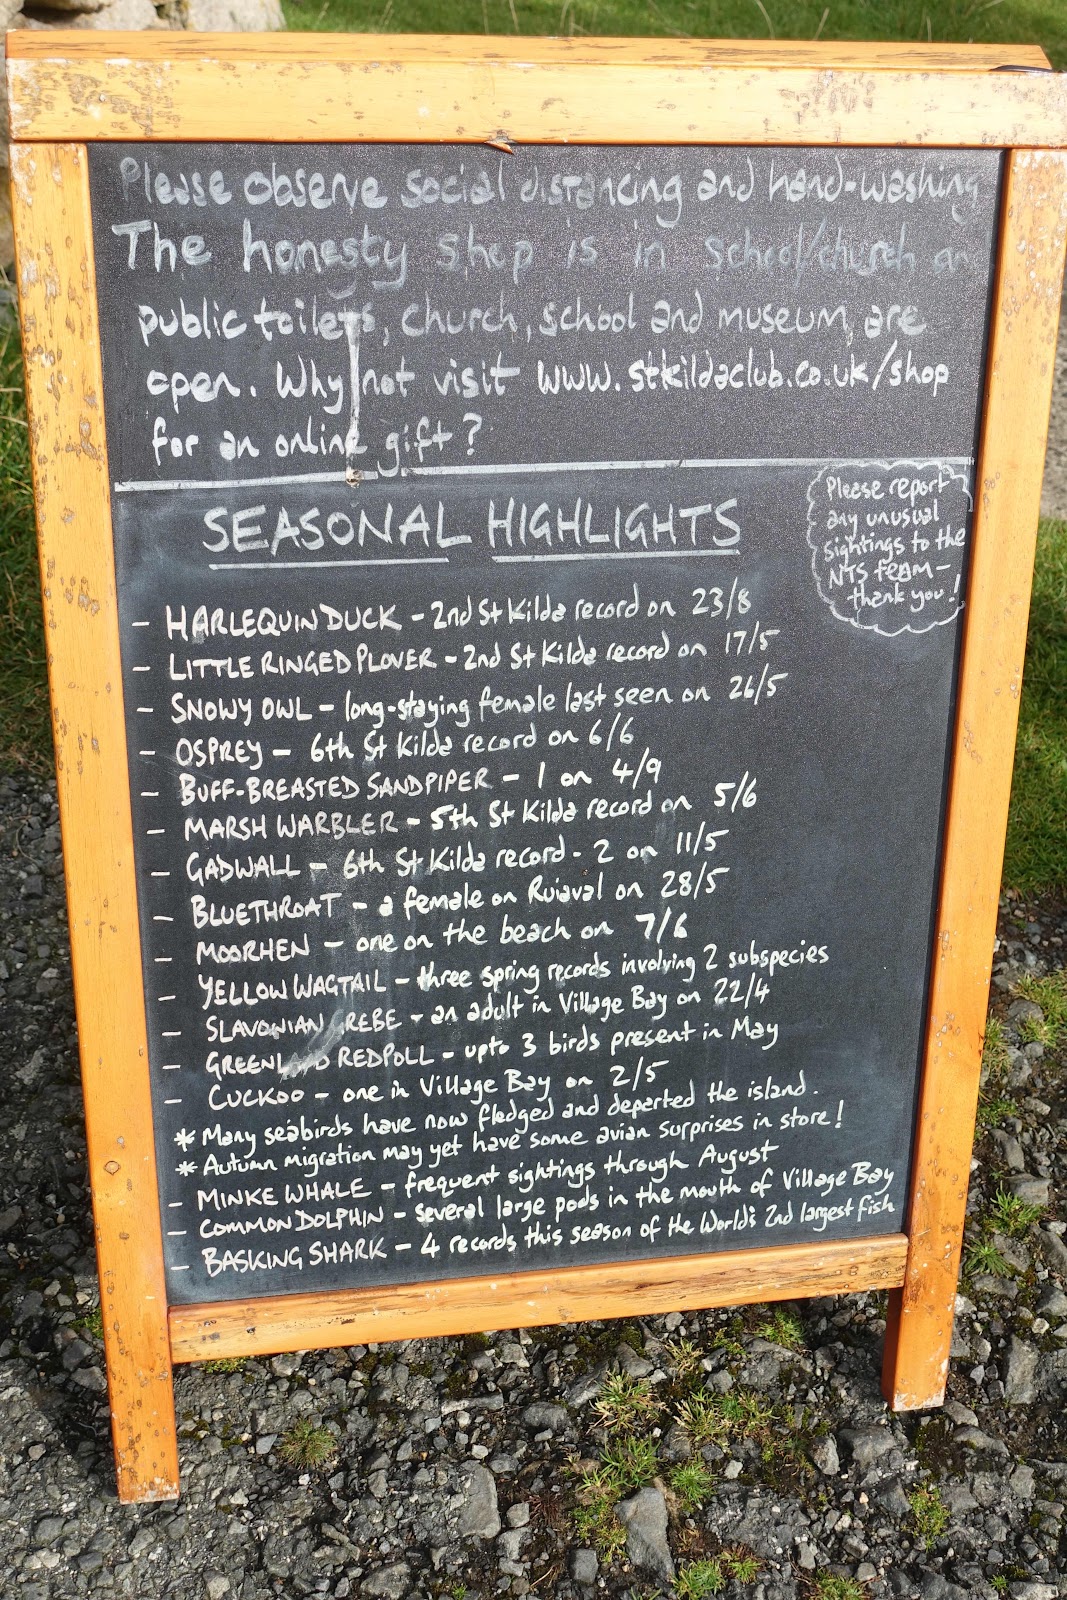 Please observe social distancing and hand-washing
The honesty shop is in school/church
public toilets, church, school and museum, are
open. Why not visit www.stkildaclub.co.uk/shop
for an online gift?
SEASONAL HIGHLIGHTS
Please report
any unusual
sightings to the
NTS team –
thank you!
– HARLEQUIN DUCK – 2nd St Kilda record on 23/8
– LITTLE RINGED PLOVER – 2nd St Kilda record on 17/5
– SNOWY OWL – long-staying female last seen on 26/5
– OSPREY – 6th St Kilda record on 6/6
– BUFF-BREASTED SANDPIPER – 1 on 4/9
– MARSH WARBLER – 5th St Kilda record on 5/6
– GADWALL – 6th St Kilda record - 2 on 11/5
– BLUETHROAT – a female on Ruiaval on 28/5
– MOORHEN – one on the beach on 7/6
– YELLOW WAGTAIL – three spring records involving 2 subspecies
– SLAVONIAN GREBE – an adult in Village Bay on 22/4
– GREENLAND REDPOLL – upto 3 birds present in May
– CUCKOO – one in Village Bay on 2/5
* Many seabirds have now fledged and departed the island.
* Autumn migration may yet have some avian surprises in store!
– MINKE WHALE – frequent sightings through August
– COMMON DOLPHIN – several large pods in the mouth of Village Bay
– BASKING SHARK – 4 records this season of the World's 2nd largest fish